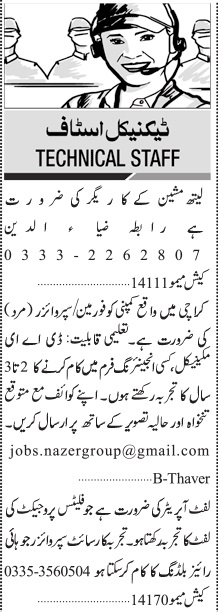 ٹیکنیکل اسٹاف
TECHNICAL STAFF
لیتھ مشین کے کاریگر کی ضرورت
ہے رابطہ ضیاء الدین
0333-2262807
کیش میمو 14111
کراچی میں واقع کمپنی کو فورمین/سپروائزر (مرد)
کی ضرورت ہے۔ تعلیمی قابلیت: ڈی اے ای
مکینیکل، کسی انجینئرنگ فرم میں کام کرنے کا 2 تا 3
سال کا تجربہ رکھتے ہوں۔ اپنے کوائف مع متوقع
تنخواہ اور حالیہ تصویر کے ساتھ پر ارسال کریں۔
jobs.nazergroup@gmail.com
B-Thaver
لفٹ آپریٹر کی ضرورت ہے جو فلیٹس پروجیکٹ کی
لفٹ کا تجربہ رکھتا ہو۔ تجربہ کار سائٹ سپروائزر جو ہائی
رائیز بلڈنگ کا کام کر سکتا ہو 0335-3560504
کیش میمو 14170